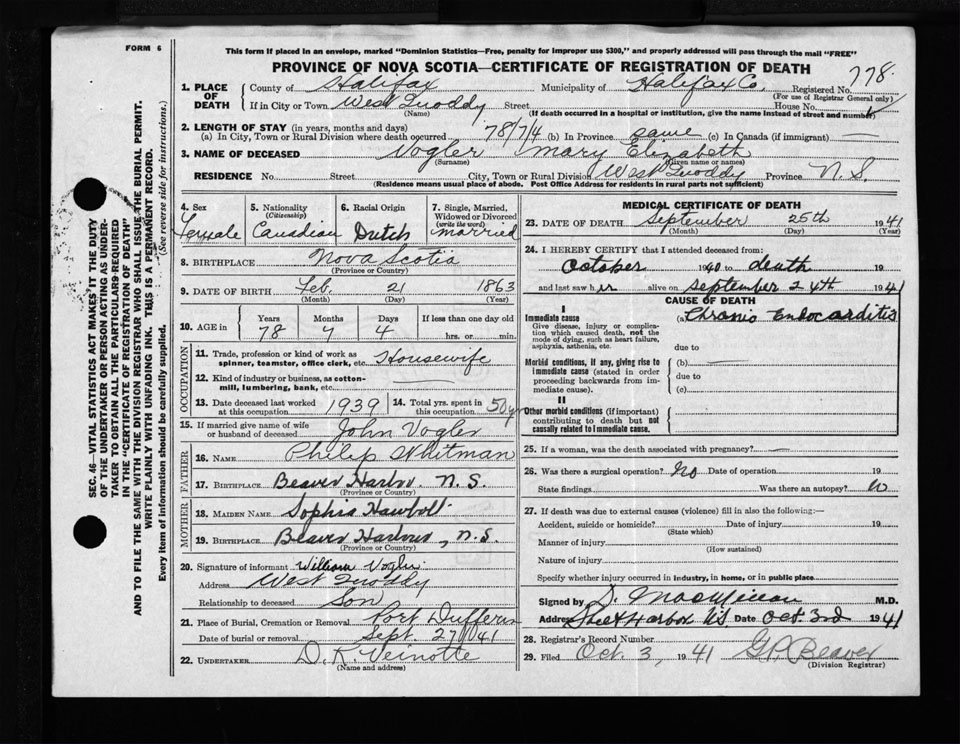 FORM 6
This form if placed in an envelope, marked "Dominion Statistics—Free, penalty for improper use $300," and properly addressed will pass through the mail "FREE"
PROVINCE OF NOVA SCOTIA—CERTIFICATE OF REGISTRATION OF DEATH
1. PLACE OF DEATH
County of Halifax Municipality of Halifax Co. Registered No. 778.
(For use of Registrar General only)
If in City or Town West Quoddy Street House No.
(Name) (If death occurred in a hospital or institution, give the name instead of street and number)
2. LENGTH OF STAY (in years, months and days)
(a) In City, Town or Rural Division where death occurred 78/7/4 (b) In Province same (c) In Canada (if immigrant) —
3. NAME OF DECEASED Vogler Mary Elizabeth
(Surname) (Given name or names)
RESIDENCE No. Street City, Town or Rural Division West Quoddy Province N.S.
(Residence means usual place of abode. Post Office Address for residents in rural parts not sufficient)
4. Sex Female
5. Nationality (Citizenship) Canadian
6. Racial Origin Dutch
7. Single, Married, Widowed or Divorced (write the word) married
8. BIRTHPLACE Nova Scotia
(Province or Country)
9. DATE OF BIRTH Feb. 21 1863
(Month) (Day) (Year)
10. AGE in Years Months Days If less than one day old
78 7 4 hrs. or min.
OCCUPATION
11. Trade, profession or kind of work as spinner, teamster, office clerk, etc. Housewife
12. Kind of industry or business, as cotton-mill, lumbering, bank, etc. —
13. Date deceased last worked at this occupation 1939
14. Total yrs. spent in this occupation 50 yr
15. If married give name of wife or husband of deceased John Vogler
FATHER
16. NAME Philip Whitman
17. BIRTHPLACE Beaver Harbor. N.S.
(Province or Country)
MOTHER
18. MAIDEN NAME Sophia Hawbolt
19. BIRTHPLACE Beaver Harbor, N.S.
(Province or Country)
20. Signature of informant William Vogler
Address West Quoddy
Relationship to deceased Son
21. Place of Burial, Cremation or Removal Port Dufferin
Date of burial or removal Sept. 27/41
22. UNDERTAKER D. K. Veinotte
(Name and address)
MEDICAL CERTIFICATE OF DEATH
23. DATE OF DEATH September 25th 1941
(Month) (Day) (Year)
24. I HEREBY CERTIFY that I attended deceased from:
October 1940 to death 19
and last saw her alive on September 24th 1941
CAUSE OF DEATH
I
Immediate cause (a) Chronic Endocarditis
Give disease, injury or complication which caused death, not the mode of dying, such as heart failure, asphyxia, asthenia, etc.
due to
Morbid conditions, if any, giving rise to immediate cause (stated in order proceeding backwards from immediate cause).
(b) —
due to
(c)
II
Other morbid conditions (if important) contributing to death but not causally related to immediate cause.
25. If a woman, was the death associated with pregnancy? —
26. Was there a surgical operation? No Date of operation 19
State findings Was there an autopsy?
27. If death was due to external causes (violence) fill in also the following:—
Accident, suicide or homicide? Date of injury 19
(State which)
Manner of injury
(How sustained)
Nature of injury
Specify whether injury occurred in industry, in home, or in public place
Signed by D. MacMillan M.D.
Address Sheet Harbor NS Date Oct. 3rd 1941
28. Registrar's Record Number
29. Filed Oct. 3, 1941 G.P. Beaver
(Division Registrar)
SEC. 46—VITAL STATISTICS ACT MAKES IT THE DUTY
OF THE UNDERTAKER OR PERSON ACTING AS UNDER-
TAKER TO OBTAIN ALL THE PARTICULARS REQUIRED
IN THE "CERTIFICATE OF REGISTRATION OF DEATH"
AND TO FILE THE SAME WITH THE DIVISION REGISTRAR WHO SHALL ISSUE THE BURIAL PERMIT.
WRITE PLAINLY WITH UNFADING INK. THIS IS A PERMANENT RECORD.
Every item of information should be carefully supplied. (See reverse side for instructions.)